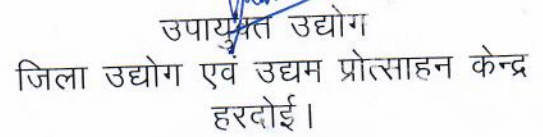 उपायुक्त उद्योग
जिला उद्योग एवं उद्यम प्रोत्साहन केन्द्र
हरदोई।